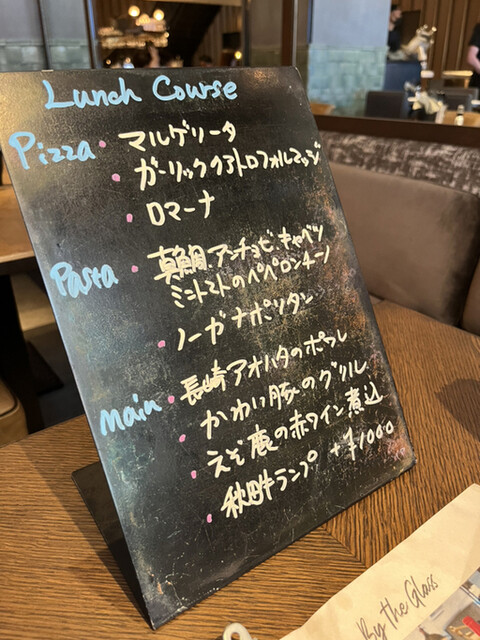 Lunch Course
Pizza・マルゲリータ
・ガーリッククアトロフォルマッジ
・ロマーナ
Pasta・真鯛、アンチョビ、キャベツ
ミニトマトのペペロンチーノ
・ノーガナポリタン
Main・長崎アオハタのポワレ
・かわい豚のグリル
・えぞ鹿の赤ワイン煮込
・秋田牛ランプ +¥1000
By the Glass